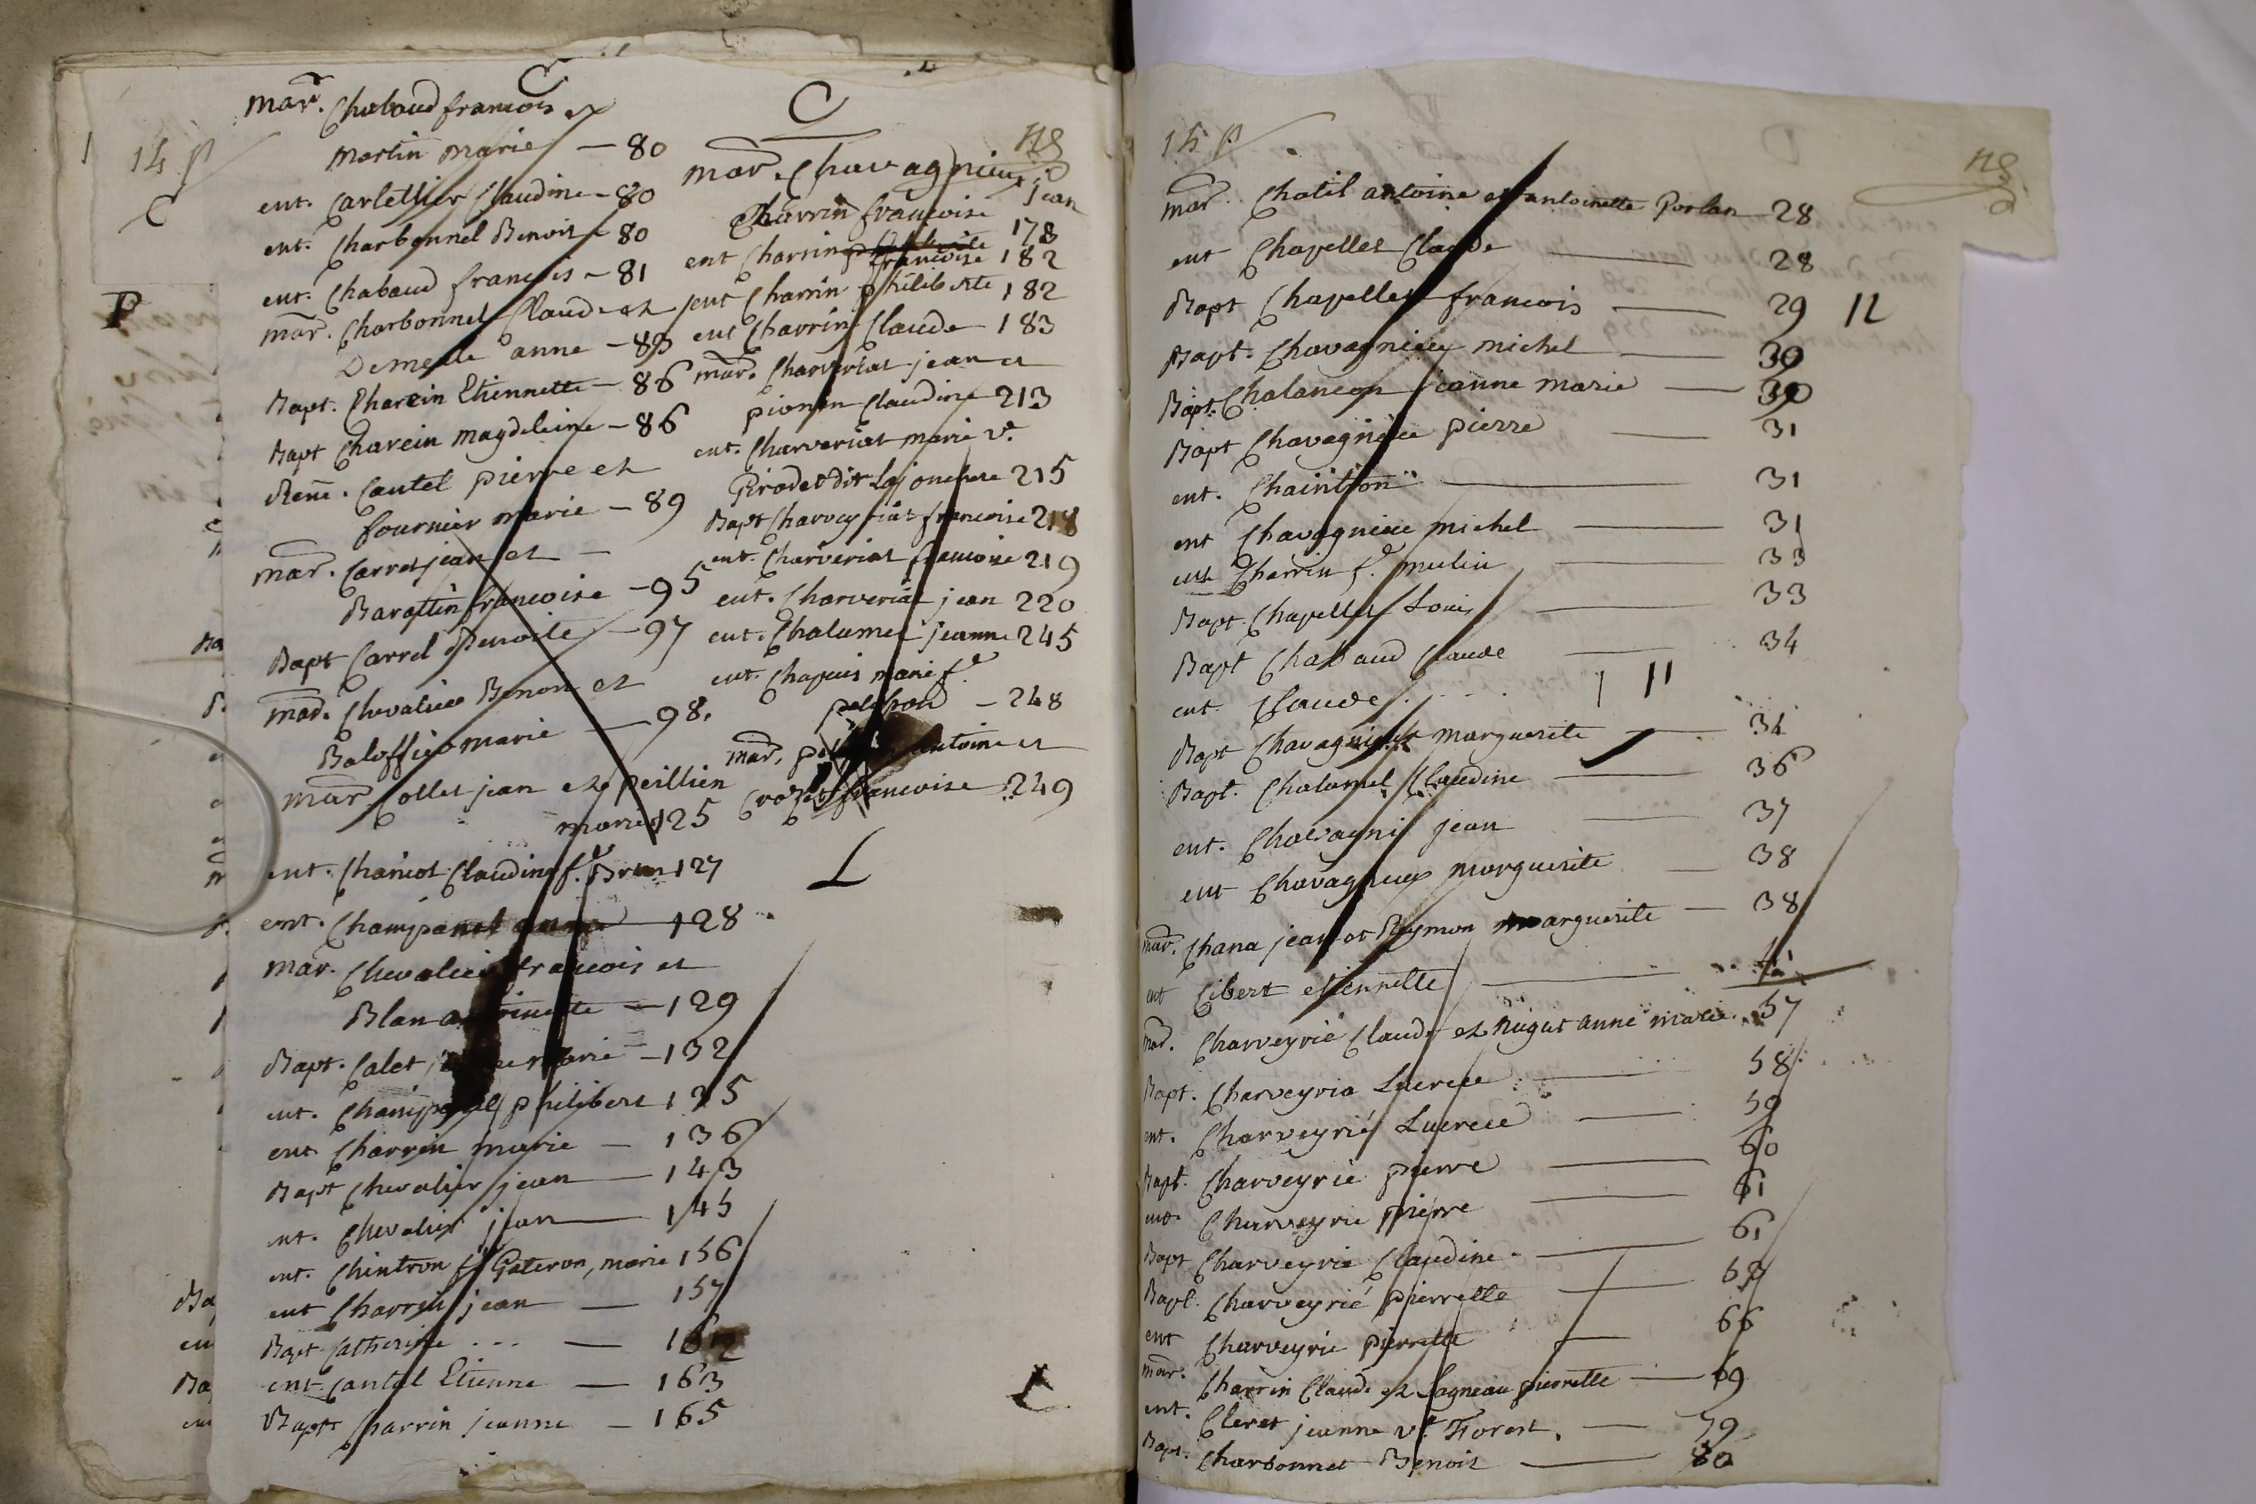 C
mar. Chabaud francois et
Martin marie — 80
14 p
C
ent. Carlettier Claudine - 80
ent. Charbonnel Benoit - 80
ent. Chabaud francois - 81
mar. Charbonnel Claude et
Demesle anne - 83
P
Bapt. Charein Etiennette - 86
Bapt Charein magdeleine - 86
Cautel pierre et
fournier marie - 89
mar. Carret jean et -
Barattin francoise - 95
Bapt Carrel Benoite - 97
mar. Chevalier Benoit et
Baloffier marie — 98.
mar Collet jean et peillien
marie 125
ent. Chaniot Claudine f.e Brun 127
ent. Champanel anne — 128
mar. Chevalier francois et
Blan antoinette — 129
Bapt. Calet marie - 132
ent. Champanel philibert 135
ent Charrin marie — 136
Bapt Chevalier jean — 143
ent. Chevalier jean — 145
ent. Chintron f.e Gateron, marie 156
ent Charrin jean — 157
Bapt Catherine ... — 162
ent. Cautel Etienne — 163
Bapt Charrin jeanne — 165
C
mar. Chavagnieux jean
Charrin francoise 178
ent Charrin francoise 182
ent Charrin philiberte 182
ent Charrin Claude - 183
mar. Charveriat jean et
pionin Claudine - 213
ent. Charveriat marie v.e
Girodet dit Lajonchere 215
Bapt Charveyriat francoise 218
ent. Charveriat francoise 219
ent. Charveriat jean 220
ent. Chalumel jeanne 245
ent. Chapuis marie f.e
— 248
mar. antoine et
Crozet francoise 249
L
15 p
mar. Chatil antoine et antoinette Porlan — 28
ent Chapellet Claude — 28
Bapt Chapellet francois — 29 11
Bapt. Chavagnieu michel — 30
Bapt. Chalancon jeanne marie — 30
Bapt Chavagnieu pierre — 31
ent. Chaintron — 31
ent Chavagnieu michel — 31
ent Charrin f.e mulin — 33
Bapt. Chapellet Louis — 33
Bapt Chabaud Claude — 34
ent. Claude . . . . . 11
Bapt Chavagnieux marguerite — 34
Bapt. Chalamel Claudine — 36
ent. Chavagni jean — 37
ent Chavagnieux marguerite — 38
mar. Chana jean et Reymon marguerite — 38
ent Cibert etiennette —
mar. Charveyrié Claude et nugut anne marie. 57
Bapt. Charveyria Lucrece — 58
ent. Charveyrié Lucrece — 59
Bapt. Charveyrié pierre — 60
ent. Charveyrié pierre — 61
Bapt Charveyrié Claudine — 61
Bapt. Charveyrié pierrette —
ent Charveyrié pierrette — 66
mar. Charrin Claude et Lagneau pierrette — 69
ent. Cleret jeanne v.e Forest. — 79
Bapt. Charbonnel Benoit — 80